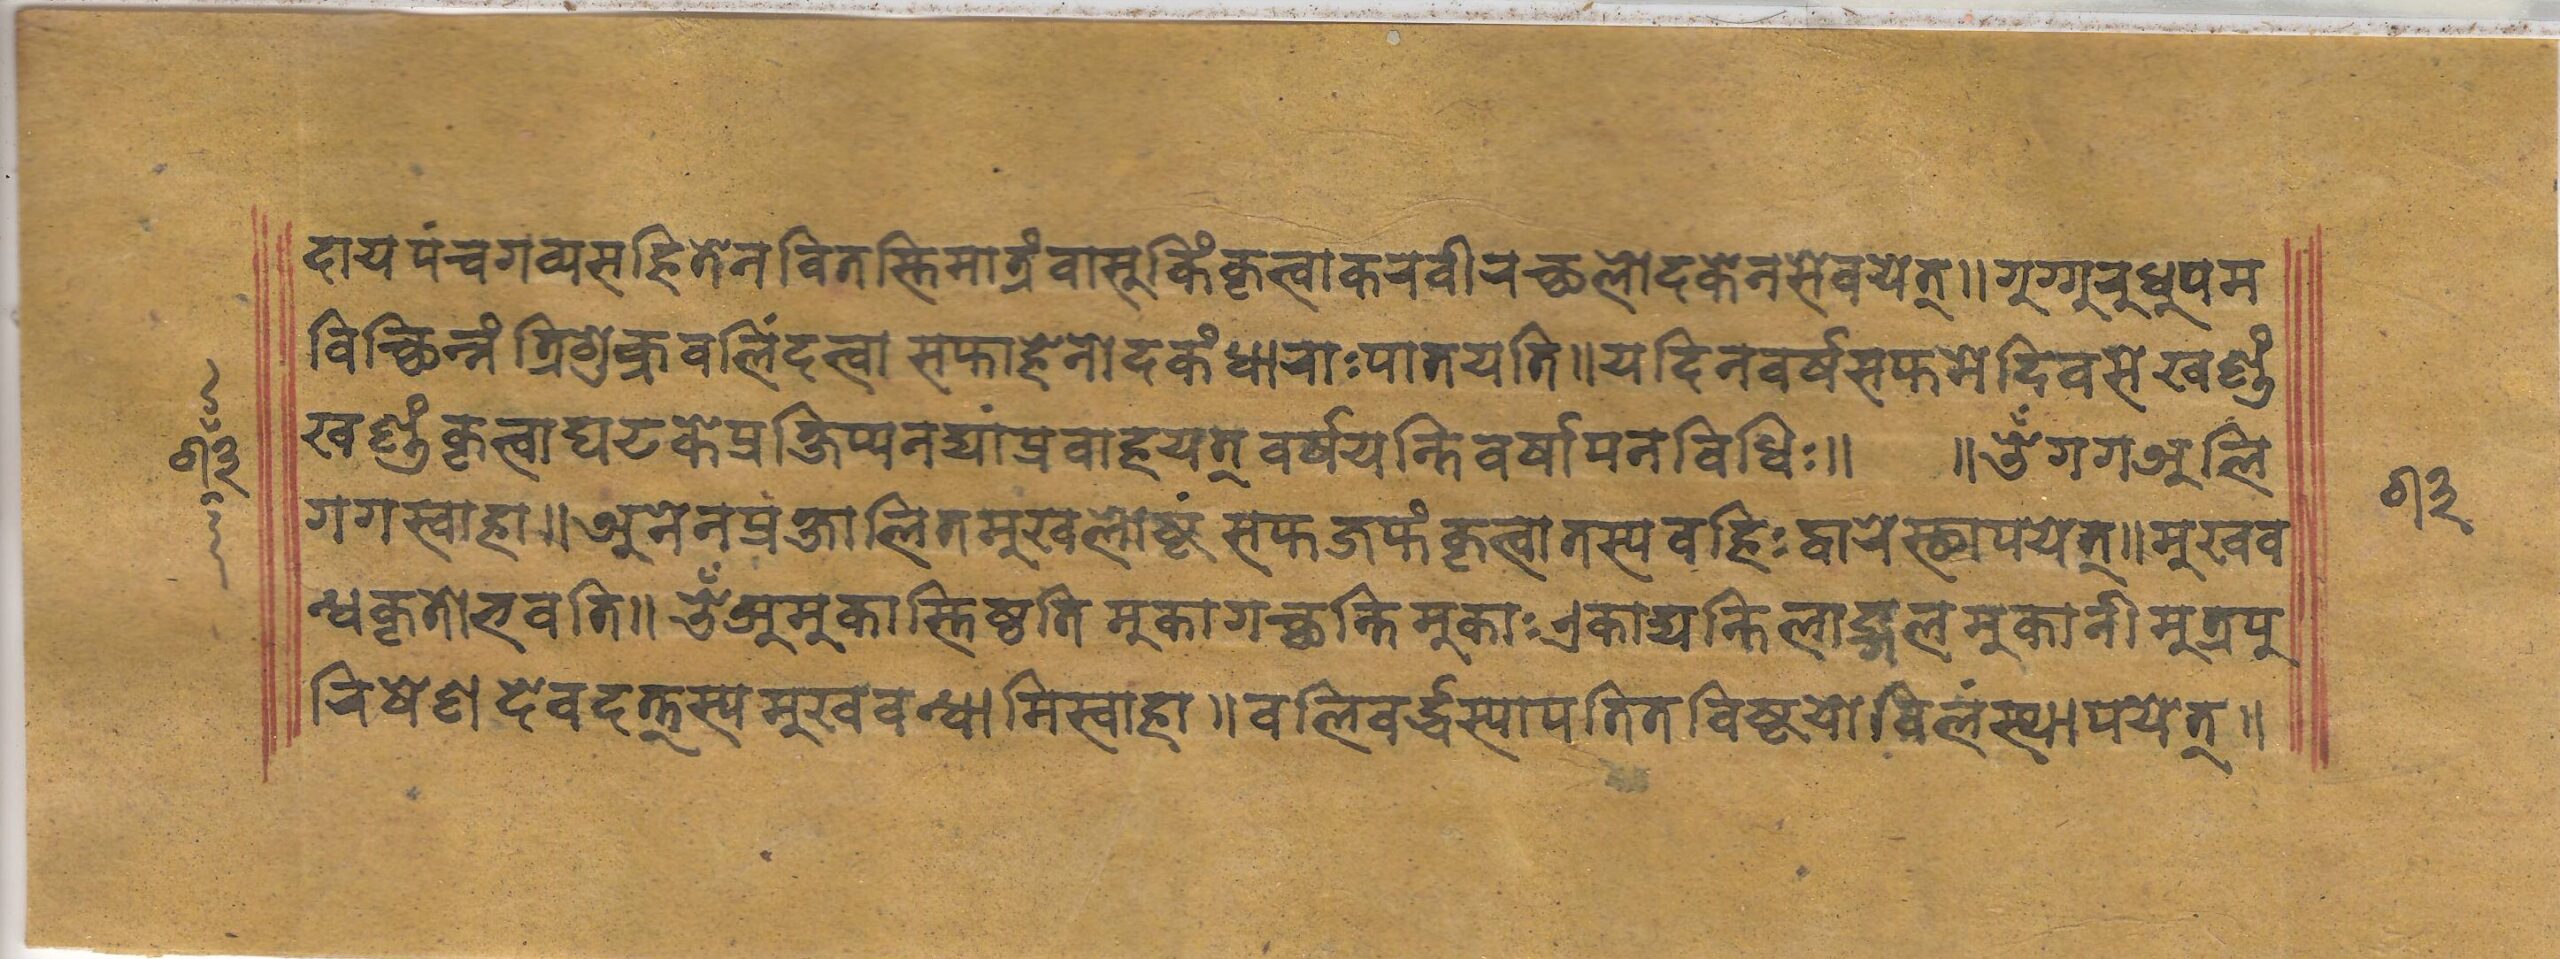 दाय पंचगव्यसहितेन वितस्तिमात्रं वासुकिं कृत्वा करवीरच्छलोदकेन सेवयेत्॥ गुग्गुरुधुपम
विच्छिन्नं त्रिशुक्रवलिं दत्वा सप्ताहेनोदकं धाराः पातयति॥ यदि न वर्ष सप्तमे दिवसे खण्डं
खण्डं कृत्वा घटके प्रक्षिप्य नद्यां प्रवाहयत् वर्षयन्ति वर्षापनविधिः॥ ॥ ॐ गग अुलि
गग स्वाहा॥ अनेन प्रक्षालित मुखलोष्टं सप्त जप्तं कृत्वा तस्य वहिः द्वारे स्थापयेत्॥ मुखव
न्धकृतो भवति॥ ॐ अमुकास्तिष्ठति मुका गच्छन्ति मुकाः एकाद्यन्ति लाङ्गल मुकानी मुत्रपु
रिषेण देवदत्तस्य मुखवन्धामि स्वाहा॥ वलिवर्द्धस्यापतित विष्टयो विलं स्थापयेत्॥
१३
१३